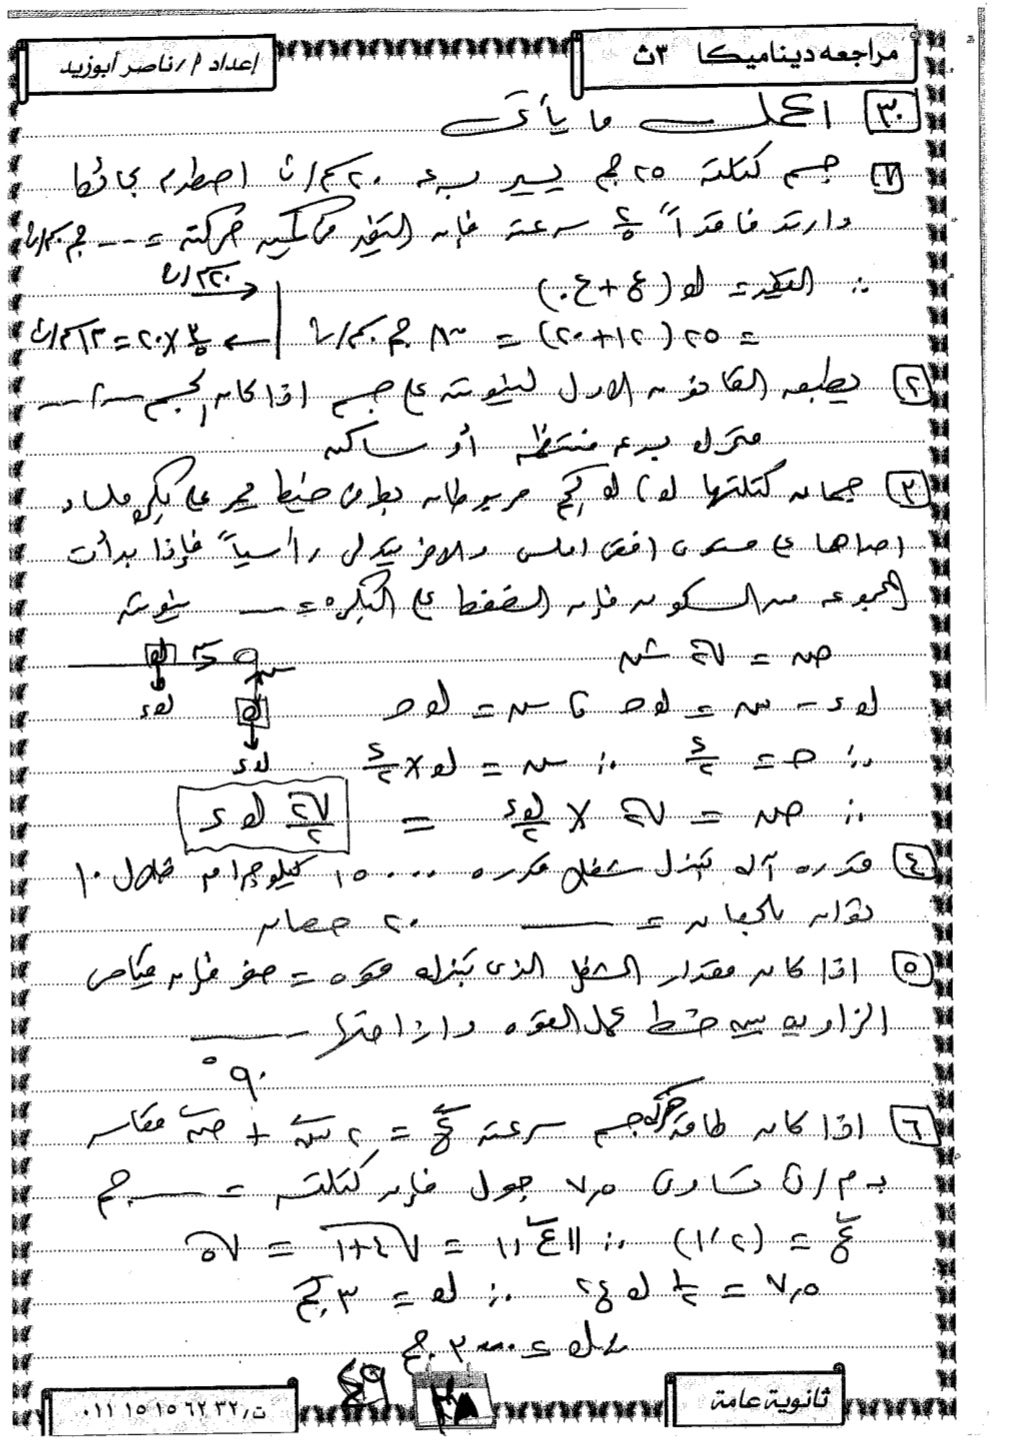 مراجعه ديناميكا ٣ث
إعداد أ/ ناصر أبوزيد
٣٠ اكمل ما يأتى
١ جسم كتلته ٢٥ جم يسير بسرعه ٢٠ سم/ث اصطدم بحائط
وارتد فاقداً ٢/٥ سرعته فإن التغير فى كمية حركته = --- جم.سم/ث
∴ التغير = ك (ع + ع.) ٢٠سم/ث
= ٢٥ (١٢ + ٢٠) = ٨٠٠ جم.سم/ث ← ٣/٥ × ٢٠ = ١٢ سم/ث
٢ يطبق القانون الاول لنيوتن على جسم اذا كان الجسم ---
متحرك بسرعه منتظمه أو ساكن
٣ جسمان كتلتهما ك ، ك كجم مربوطان بطرفى خيط يمر على بكره ملساء
احداهما على مستوى افقى املس والاخر يتدلى رأسياً فإذا بدأت
المجموعه من السكون فإن الضغط على البكره = --- نيوتن
ض = √٢ ش
ك ء - ش = ك حـ ، ش = ك حـ
∴ حـ = ء/٢ ∴ ش = ك × ء/٢
∴ ض = √٢ × ك ء/٢ = √٢/٢ ك ء
٤ قدره آله تبذل شغل قدره ١٥٠٠٠ كيلوجرام خلال ١٠
ثوان بالحصان = --- ٢٠ حصان
٥ اذا كان مقدار الشغل الذى تبذله قوه = صفر فإن قياس
الزاويه بين خط عمل القوه وازاحتها ---
٩٠°
٦ اذا كان طاقة حركه جسم سرعته ع = ٢ س + ص مقاسه
بـ م/ث تساوى ٧,٥ جول فإن كتلته = --- جم
ع = (٢ ، ١) ∴ ||ع|| = √٤+١ = √٥
٧,٥ = ١/٢ ك ع٢ ∴ ك = ٣ كجم
ك = ٣٠٠٠ جم
ثانوية عامة
٣٨
٤٩
ت/ ٠١١ ١٥ ١٥ ٦٢ ٣٢